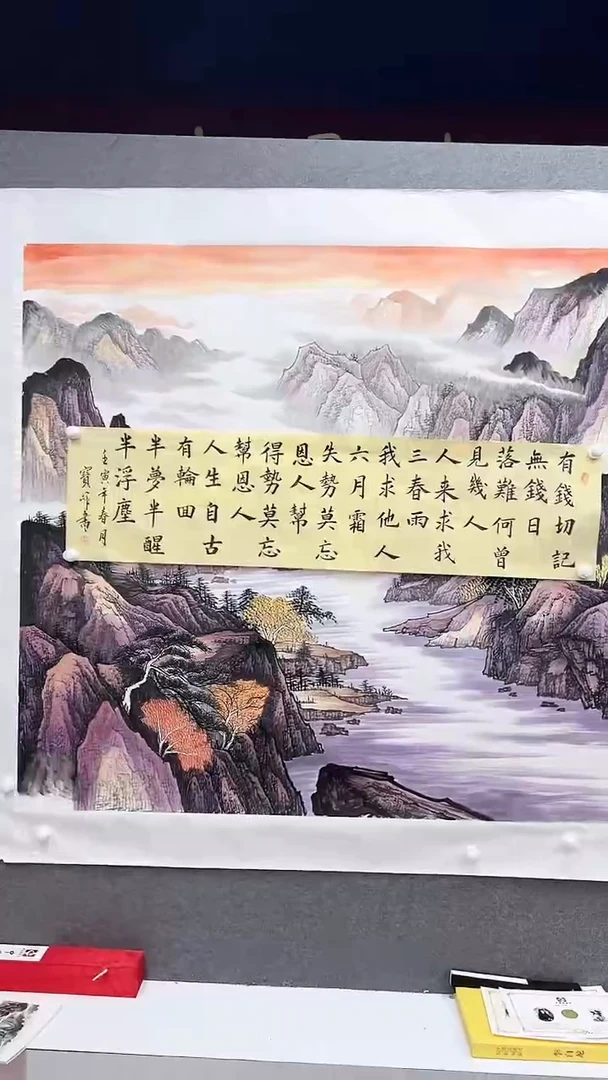 有錢切記
無錢日
落難何曾
見幾人
人来求我
三春雨
我求他人
六月霜
失勢莫忘
恩人幫
得勢莫忘
幫恩人
人生自古
有輪回
半夢半醒
半浮塵
壬寅年春月